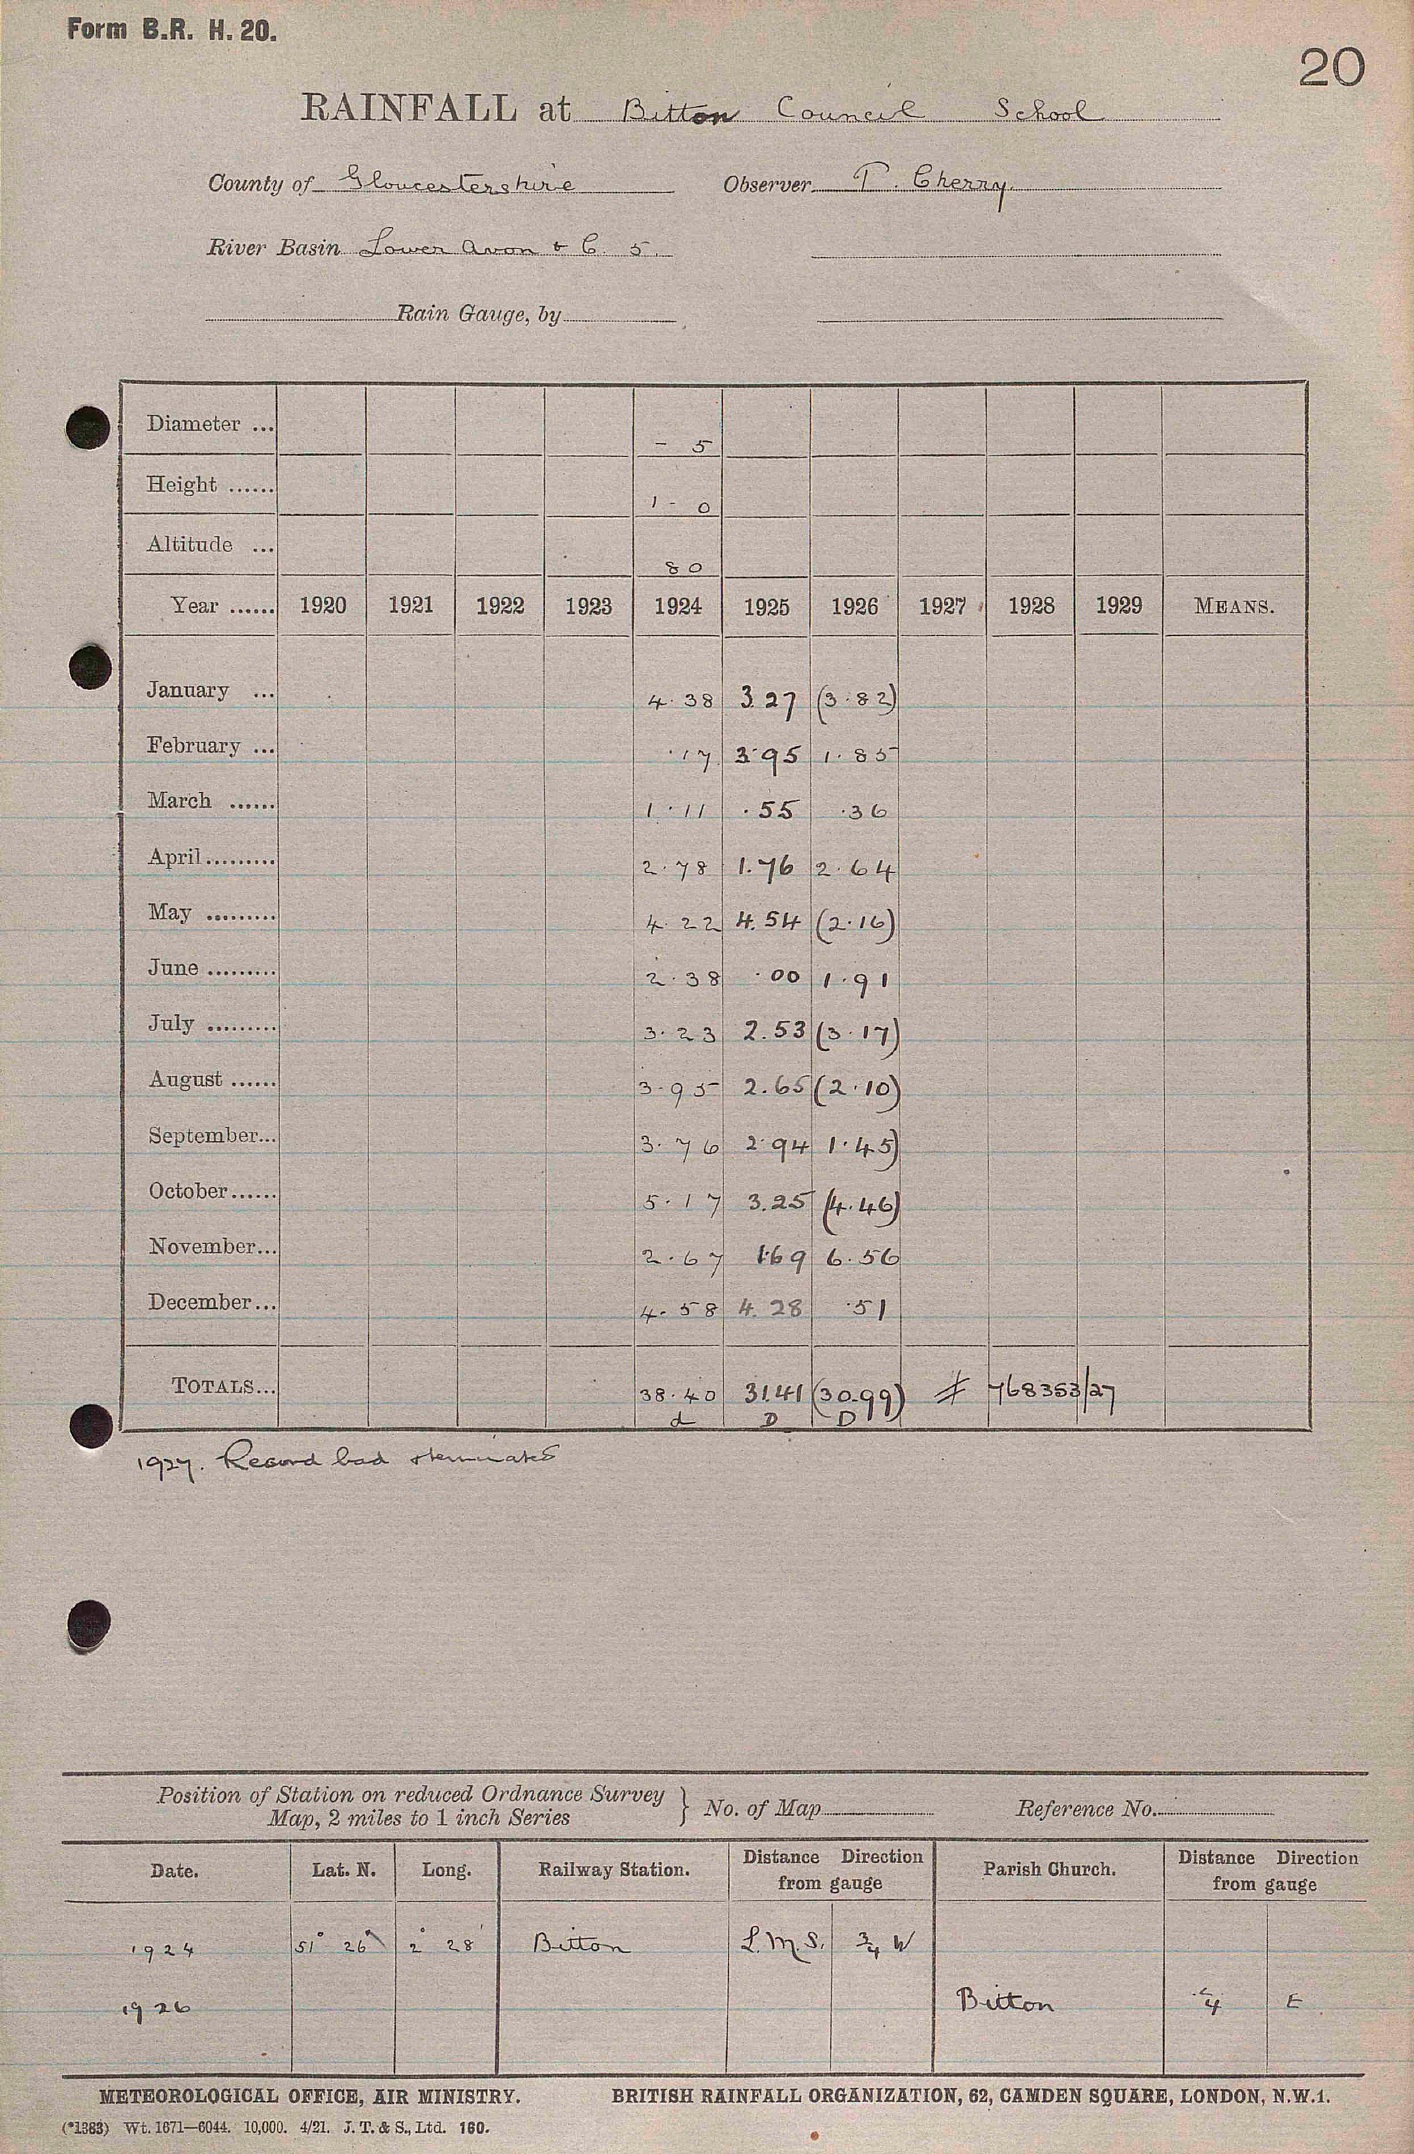 Form B.R. H. 20.
20
RAINFALL at Bitton Council School
County of Gloucestershire Observer T. Cherry.
River Basin Lower Avon & C. 5.
Rain Gauge, by
Diameter ... - 5
Height ...... 1 - 0
Altitude ... 80
Year ...... 1920 1921 1922 1923 1924 1925 1926 1927 1928 1929 MEANS.
January ... 4.38 3.27 (3.82)
February ... .17 3.95 1.85
March ...... 1.11 .55 .36
April......... 2.78 1.76 2.64
May ......... 4.22 4.54 (2.16)
June ......... 2.38 .00 1.91
July ......... 3.23 2.53 (3.17)
August ...... 3.95 2.65 (2.10)
September... 3.76 2.94 1.45)
October...... 5.17 3.25 (4.46)
November... 2.67 1.69 6.56
December... 4.58 4.28 .51
TOTALS... 38.40 31.41 (30.99) # 768353/27
d D D
1927. Record bad & terminated
Position of Station on reduced Ordnance Survey } No. of Map Reference No.
Map, 2 miles to 1 inch Series
Date. Lat. N. Long. Railway Station. Distance Direction from gauge Parish Church. Distance Direction from gauge
1924 51° 26' 2° 28' Bitton L.M.S. ¾ W
1926 Bitton 4 E
METEOROLOGICAL OFFICE, AIR MINISTRY. BRITISH RAINFALL ORGANIZATION, 62, CAMDEN SQUARE, LONDON, N.W.1.
(*1383) Wt. 1671—6044. 10,000. 4/21. J. T. & S., Ltd. 160.